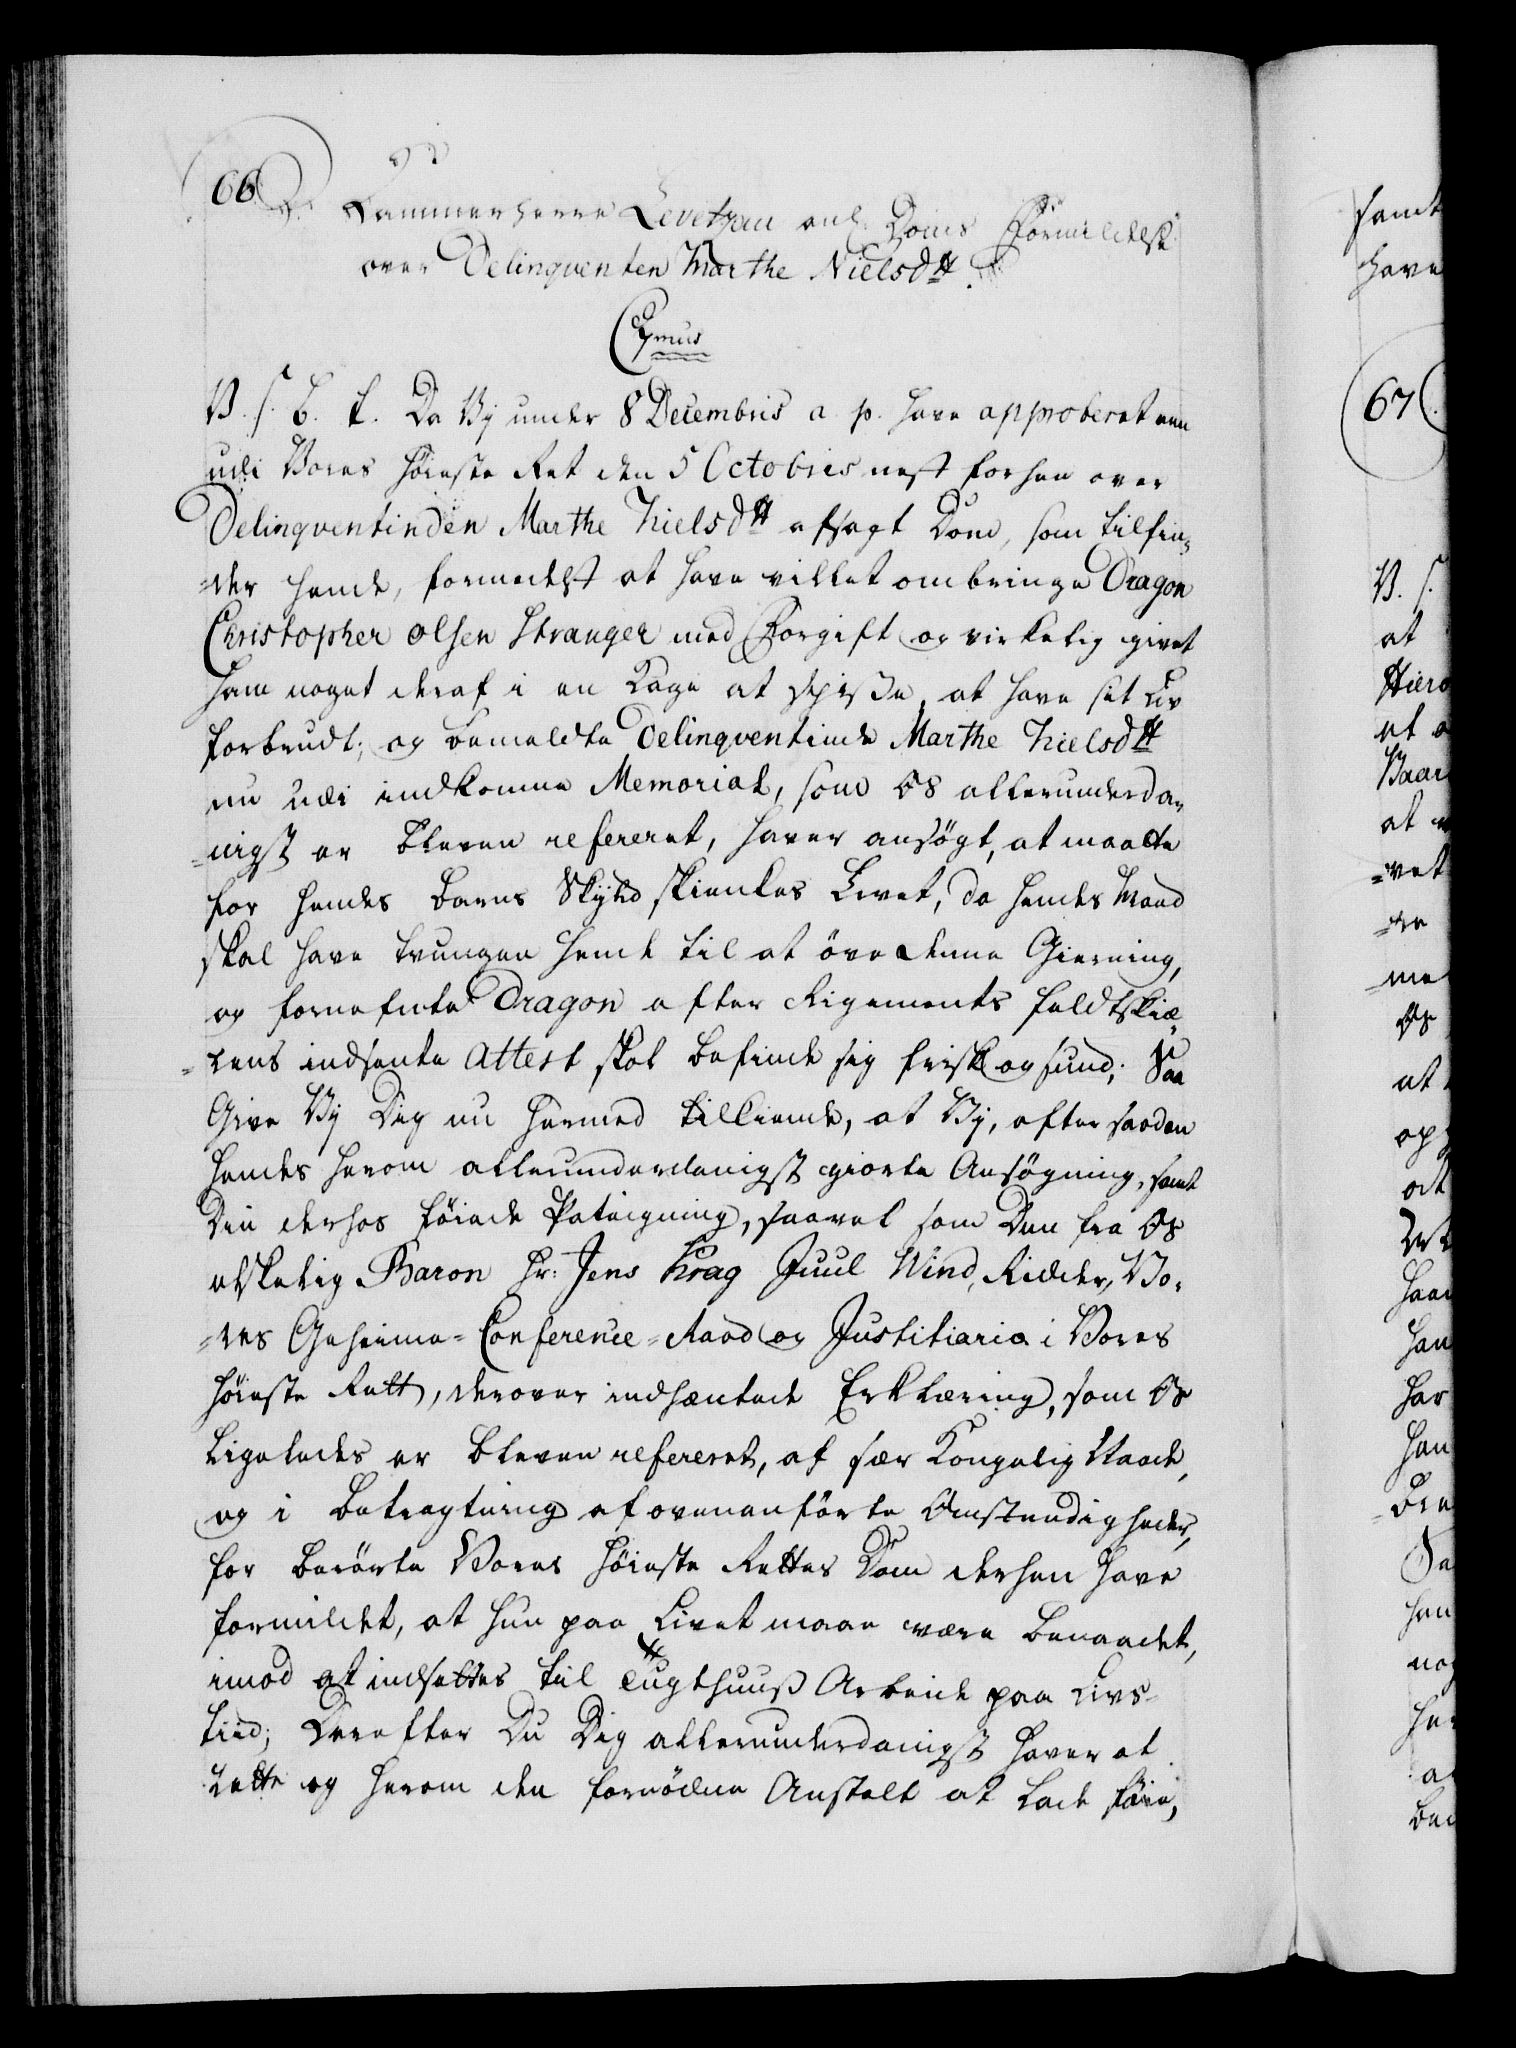 66
Kammerherre Levetzau anl. Doms Formildelse
over Delinqventen Marthe Nielsdtt.
C7mus
V. S. G. T. Da Vy under 8 Decembris a. p. have approberet een
udi Vores Høieste Ret den 5 Octobris nest forhen over
Delinqventinden Marthe Nielsdtt afsagt Dom, som tilfin-
=der hende, formedelst at have villet ombringe Dragon
Christopher Olsen Stranger med Forgift og virkelig givet
ham noget deraf i en Kage at spiße, at have sit Liv
forbrudt; og bemeldte Delinqventinde Marthe Nielsdtt
nu udi indkomne Memorial, som Os allerunderda-
=nigst er bleven refereret, haver ansøgt, at maatte
for hendes Barns Skyld skienkes Livet, da hendes Mand
skal have tvungen hende til at øve denne Gierning,
og fornefnte Dragon efter Rigements feldtskiæ-
=rens indsente Attest skal befinde sig frisk og sund; Saa
Give Vy Dig nu hermed tilkiende, at Vy, efter saadan
hendes herom allerunderdanigst giorte Ansøgning, samt
Din derhos føiede Pategning, saavel som Den fra Os
elskelig Baron Hr: Jens Krag Juul Wind, Ridder, Vo-
=res Geheime-Conference-Raad og Justitiario i Vores
Høieste Rett, derover indhæntede Erklæring, som Os
ligeledes er bleven refereret, af sær Kongelig Naade,
og i betragtning af ovenanførte Omstendigheder,
for berørte Vores Høieste Rettes Dom derhen have
formildet, at hun paa Livet maae være benaadet,
imod at indsettes til Tugthuuß Arbeide paa Livs-
tiid; Derefter Du Dig allerunderdanigst haver at
rette og herom den fornødene Anstalt at lade føie,
samt
have
67
V. S.
at
Hiero
et
at
=vet
=re
=me
Os
at
han
har
han
han